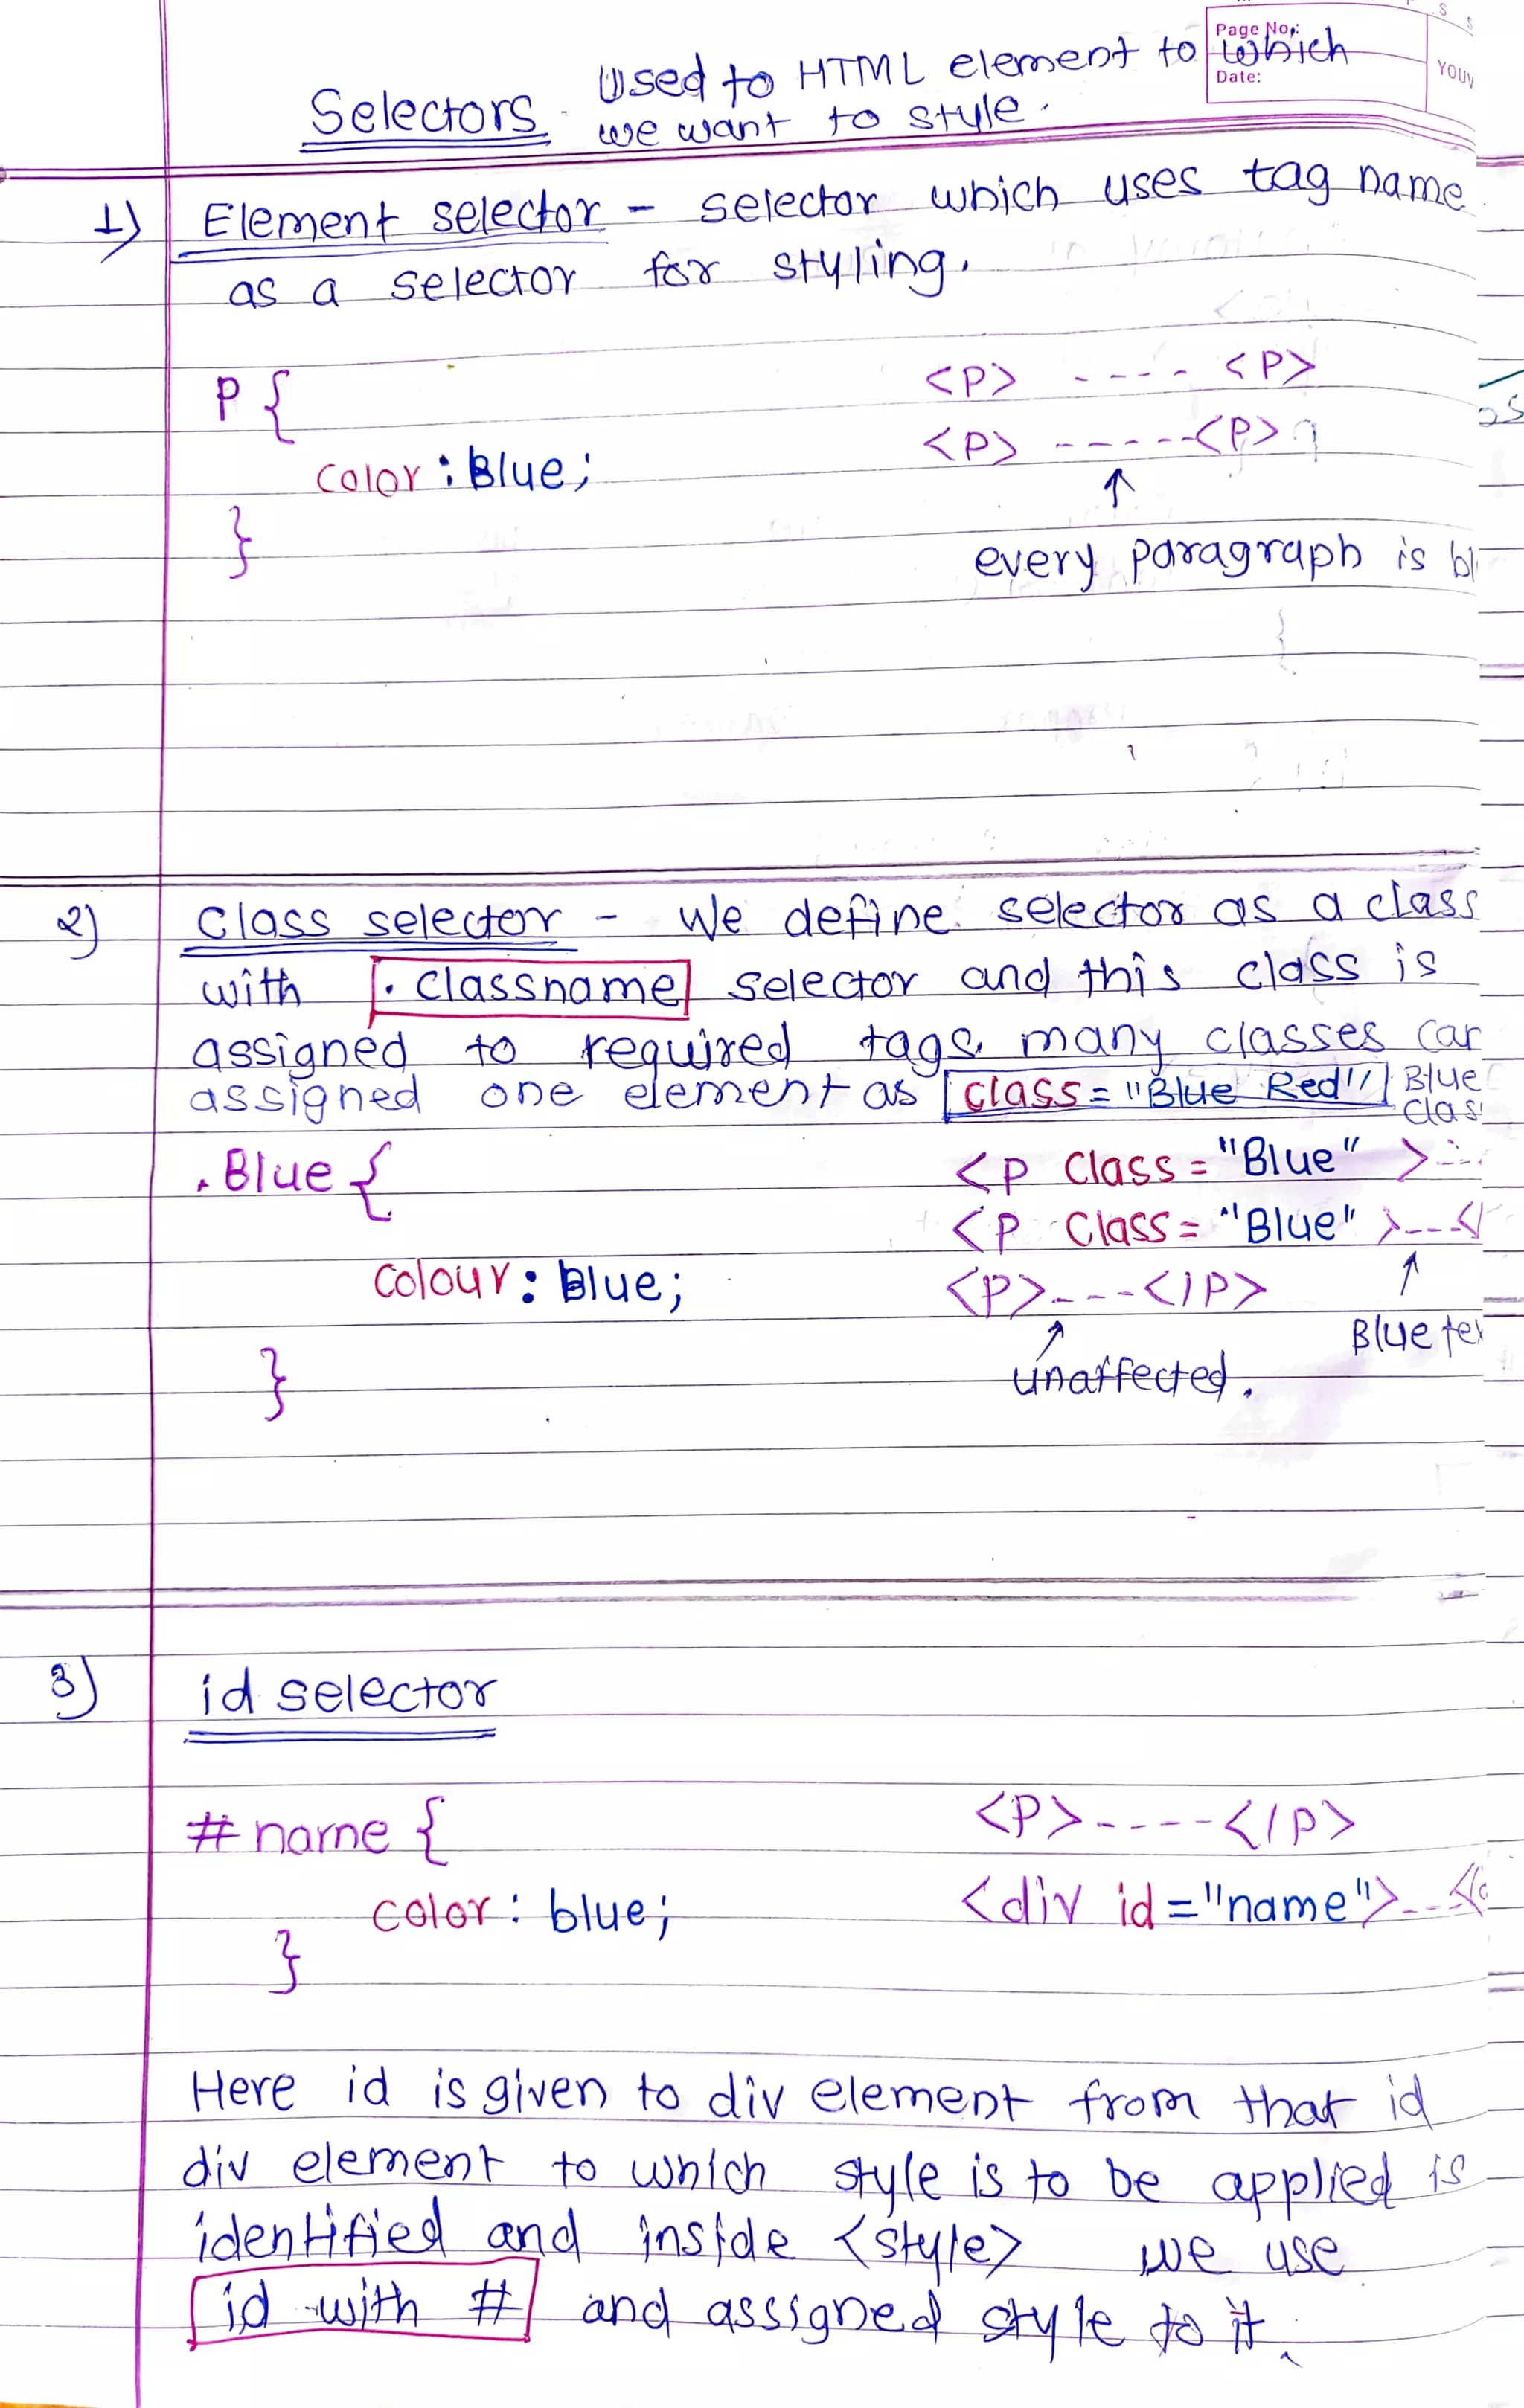 Page No.:
Date:
YOUV
Selectors - Used to HTML element to which
we want to style.
1) Element selector - selector which uses tag name
as a selector for styling.
P { <P> ---- <P>
color : Blue; <P> -----<P>
}
↑
every paragraph is bl
2) Class selector - We define selector as a class
with .classname selector and this class is
assigned to required tags. many classes can
assigned one element as class="Blue Red" Blue
Clas
.Blue { <P Class="Blue" >---
<P Class="Blue" >---</
colour: Blue; <P>----</P> ↑
↑ Blue tex
} unaffected.
3) id selector
# name { <P>-----</P>
color: blue; <div id="name">---<
}
Here id is given to div element from that id
div element to which style is to be applied is
identified and inside <style> we use
id with # and assigned style to it.